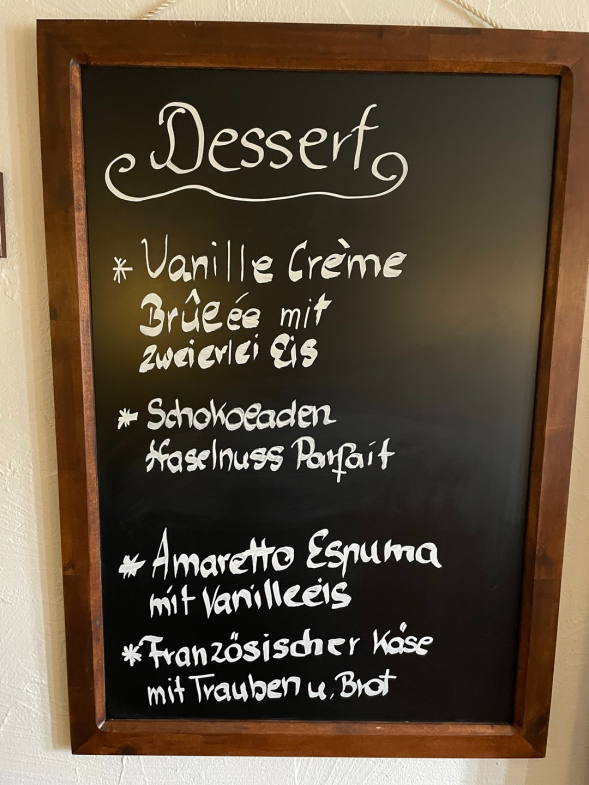 Dessert
* Vanille Crème
Brûlée mit
zweierlei Eis
* Schokoladen
Haselnuss Parfait
* Amaretto Espuma
mit Vanilleeis
* Französischer Käse
mit Trauben u. Brot